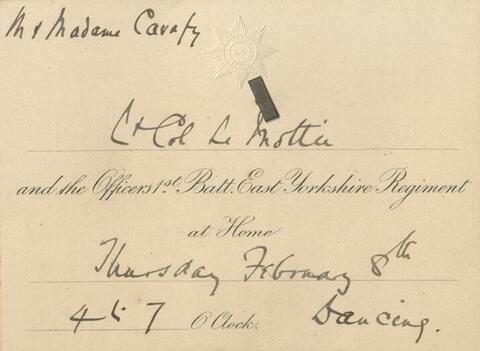 Mr Madame Cavafy
Lt Col Le Mottée
and the Officers 1st Batt. East Yorkshire Regiment
at Home
Thursday February 8th
4 to 7 O'Clock. Dancing.